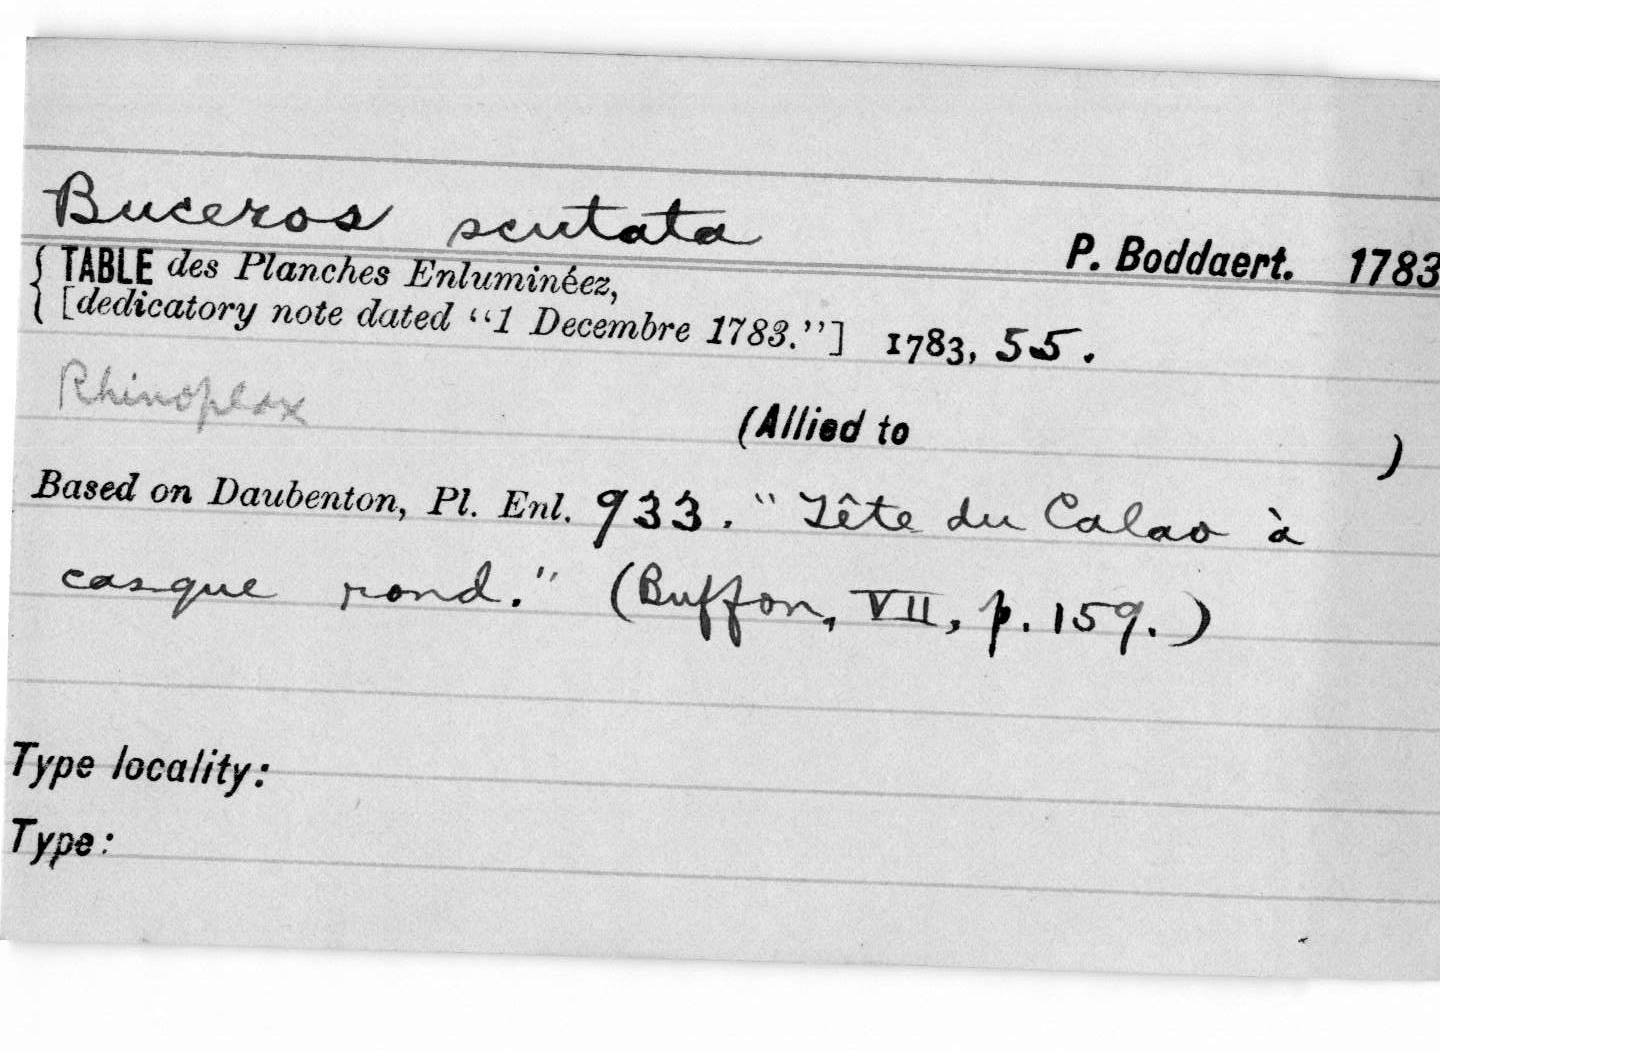 Buceros scutata
P. Boddaert. 1783
TABLE des Planches Enluminéez,
[dedicatory note dated “1 Decembre 1783.”] 1783, 55.
Rhinoplax
(Allied to )
Based on Daubenton, Pl. Enl. 933. "Tête du Calao à
casque rond." (Buffon, VII, p. 159.)
Type locality:
Type: